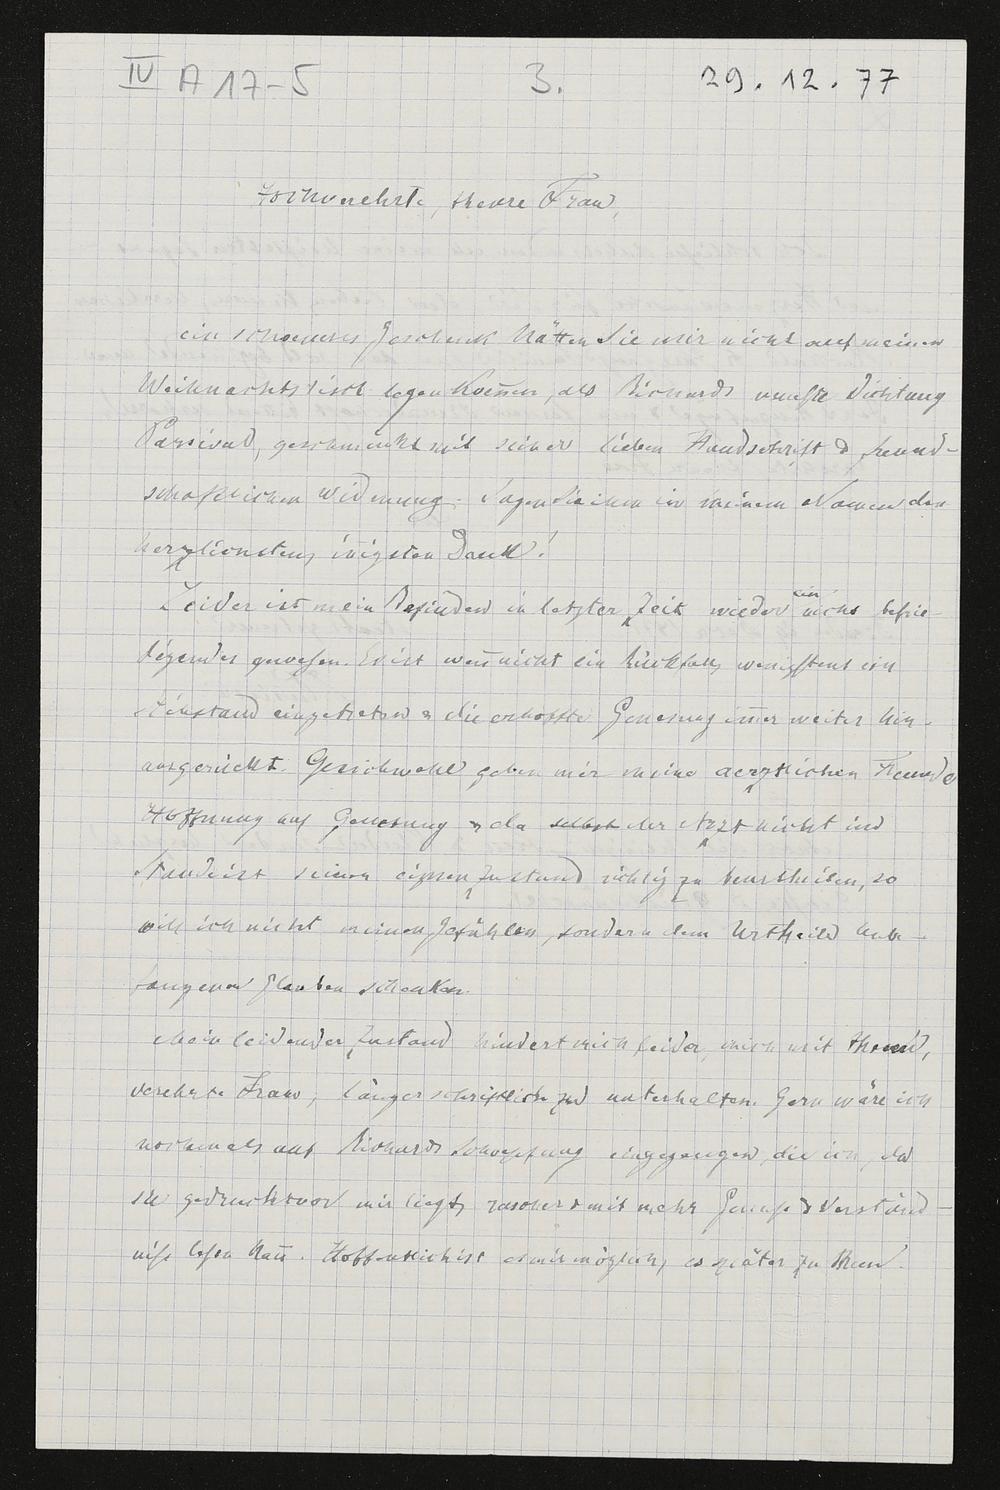 IV A 17-5 3. 29.12.77
Hochverehrte, theure Frau,
ein schoeneres Geschenk hätten Sie mir nicht auf meinen
Weihnachtstisch legen koennen, als Richards neuste Dichtung
Parsival, geschmückt mit seiner lieben Handschrift & freund-
schaftlichen Widmung. Sagen Sie ihm in meinem Namen den
herzlichsten, inigsten Dank!
Leider ist mein Befinden in letzter Zeit wieder ein nicht befrie-
digendes gewesen. Es ist wen̄ nicht ein Rückfall, wenigstens ein
Stillstand eingetreten & die erhoffte Genesung im̄er weiter hin-
ausgerückt. Gleichwohl geben mir meine aerztlichen Freunde
Hoffnung auf Genesung & da selbst der Arzt nicht im
Stande ist seinen eignen Zustand richtig zu beurtheilen, so
will ich nicht meinen Gefühlen, sondern dem Urtheile Unbe-
fangener Glauben schenken.
Mein leidender Zustand hindert mich leider, mich mit Ihnen,
verehrte Frau, länger schriftlich zu unterhalten. Gern wäre ich
nochmals auf Richards Schoepfung eingegangen, die ich, da
sie gedruckt vor mir liegt, rascher & mit mehr Genuss & Verständ-
niss lesen kan̄. Hoffentlich ist es mir möglich, es später zu thun.